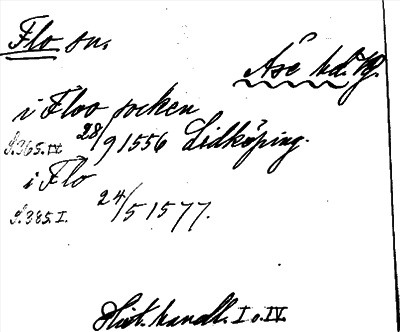 Flo sn.
Åse hd. Vg.
i Floo socken
S.365.IV. 28/9 1556 Lidköping.
i Flo
S.385.I. 24/5 1577.
Hist. handl. I o. IV.